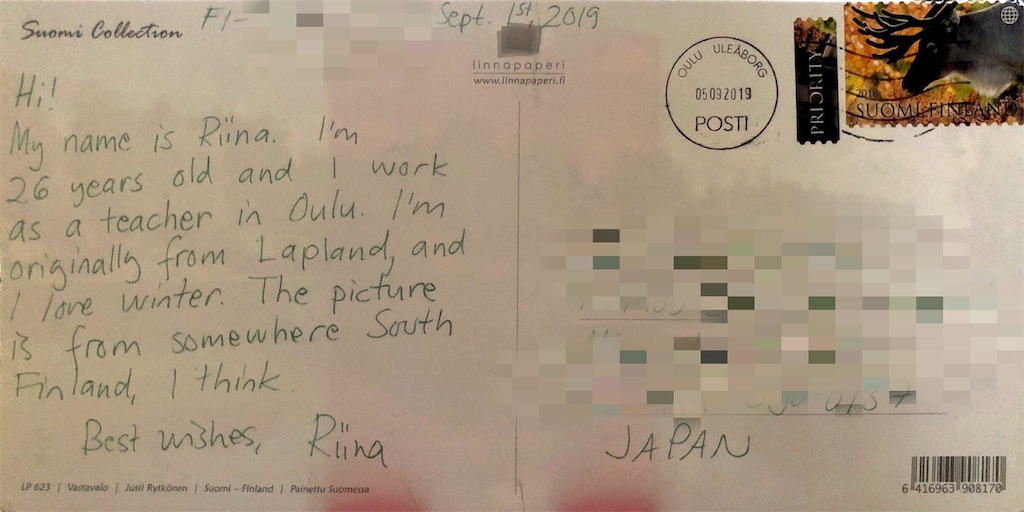 Suomi Collection
FI-
Sept. 1st, 2019
linnapaperi
www.linnapaperi.fi
OULU ULEÅBORG
05.09.2019
POSTI
PRIORITY
2018
SUOMI FINLAND
Hi!
My name is Riina. I'm
26 years old and I work
as a teacher in Oulu. I'm
originally from Lapland, and
I love winter. The picture
is from somewhere South
Finland, I think.
Best wishes, Riina
JAPAN
LP 623 | Vastavalo | Jussi Rytkönen | Suomi – Finland | Painettu Suomessa
6 416963 908170